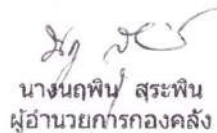 นางนฤพิน สุระพิน
ผู้อำนวยการกองคลัง